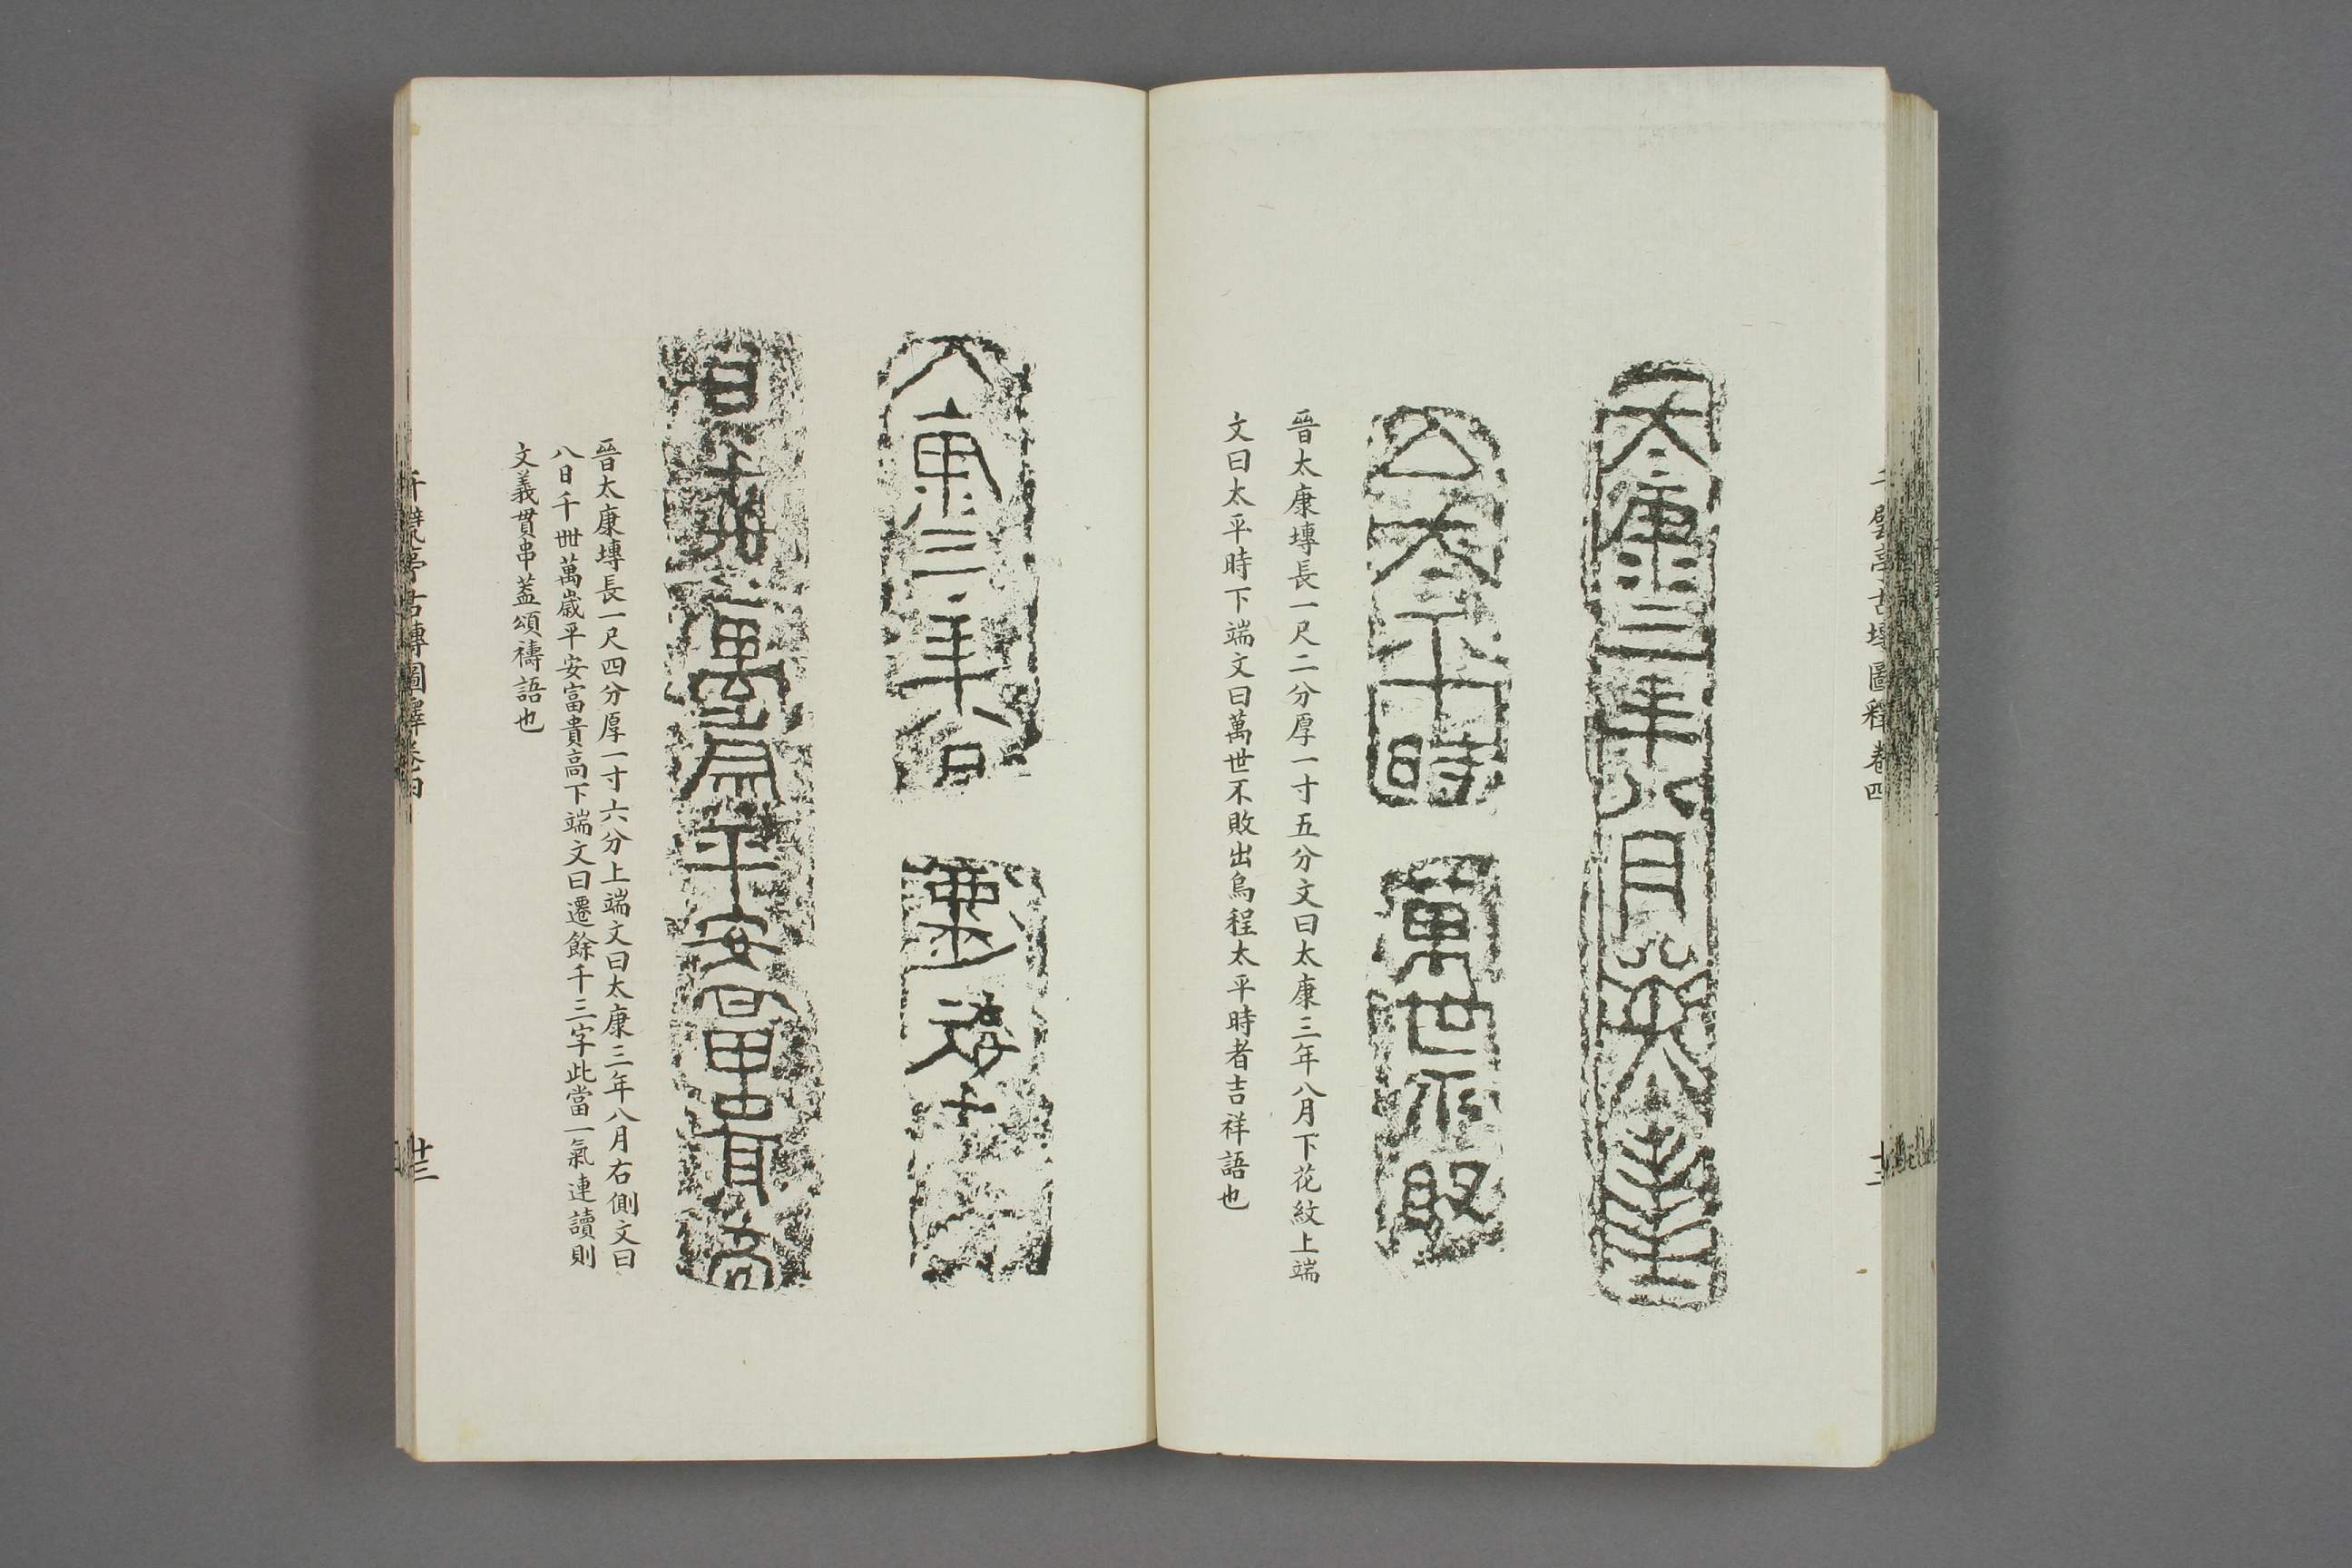 大康三年八月
大平時
萬世不敗
晉太康塼長一尺二分厚一寸五分文曰太康三年八月下花紋上端
文曰太平時下端文曰萬世不敗出烏程太平時者吉祥語也
大康三年八
日千世萬歲平安富貴高
晉太康塼長一尺四分厚一寸六分上端文曰太康三年八月右側文曰
八日千卌萬歲平安富貴高下端文曰遷餘千三字此當一氣連讀則
文義貫串蓋頌禱語也
千甓亭古塼圖釋卷四
廿三